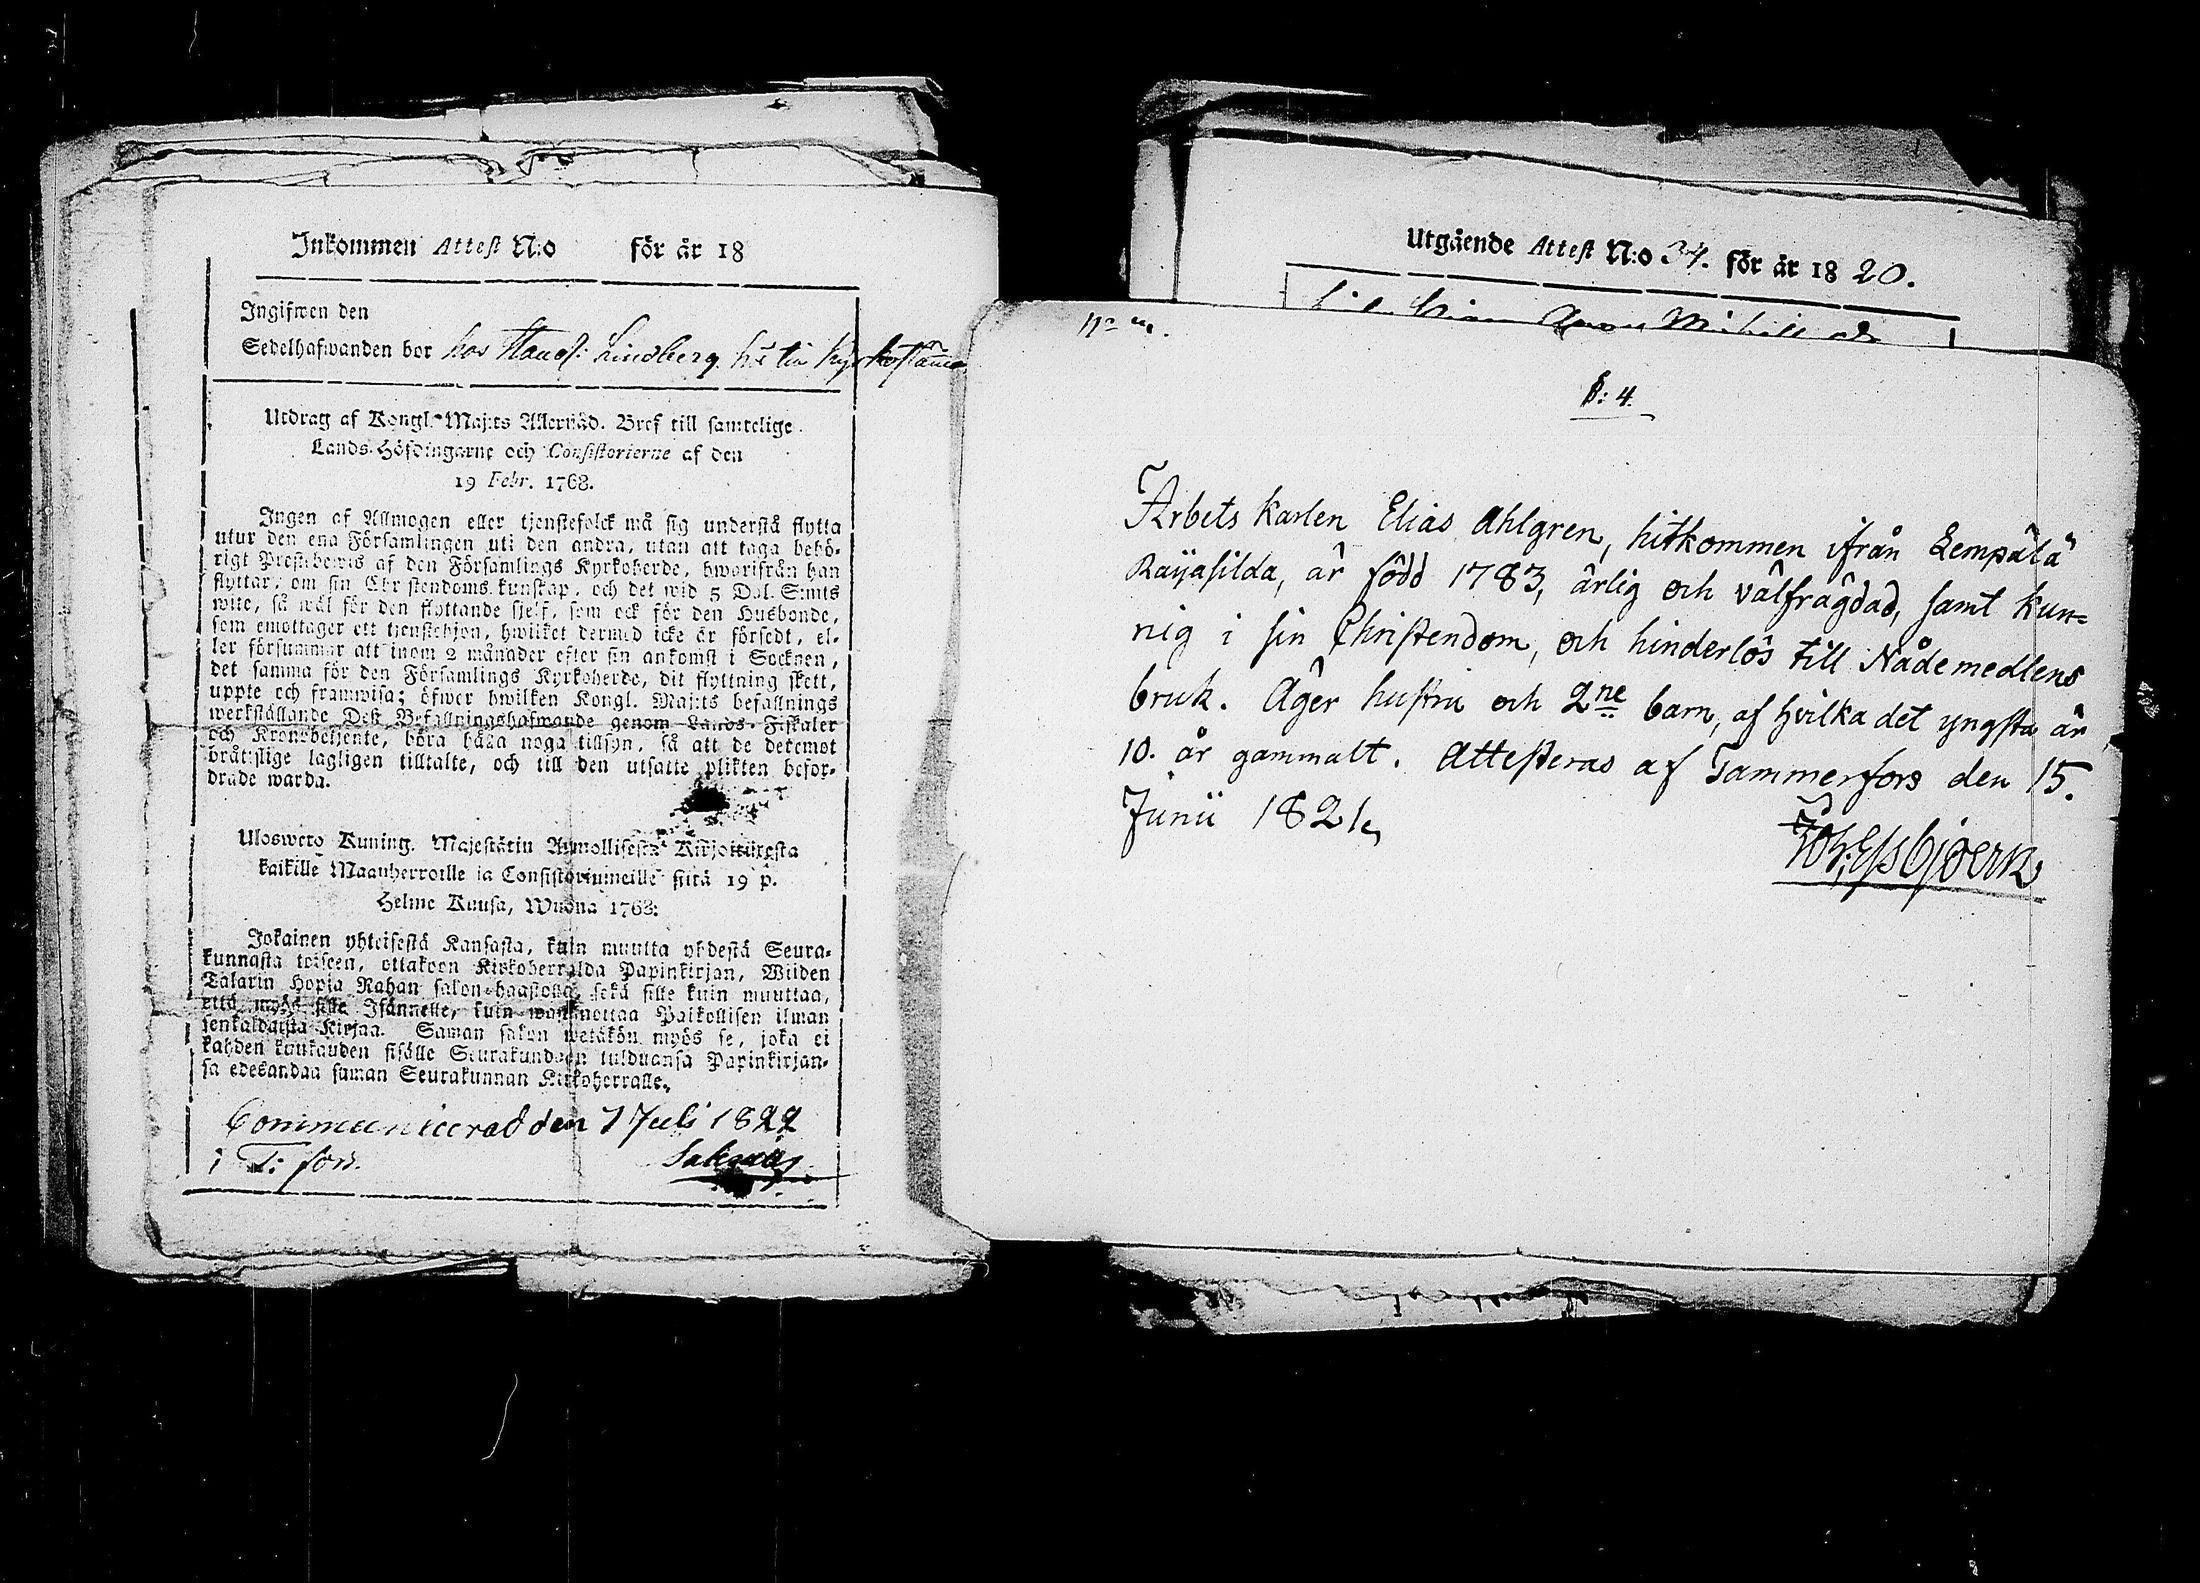 Inkommen Attest N:o för år 18
Ingifwen den
Sedelhafwanden bor hos Lindberg
Utdrag af Kongl. Maj:ts Allernåd. Bref till samtelige
Lands-Höfdingarne och Consistorierne af den
19 Febr. 1768.
Ingen af Allmogen eller tjenstefolck må sig understå flytta
utur den ena Församlingen uti den andra, utan att taga behö-
rigt Prestbewis af den Församlings Kyrkoherde, hworifrån han
flyttar, om sin Christendoms kunskap, och det wid 5 Dal. S:mts
wite, så wäl för den flyttande sjelf, som ock för den Husbonde,
som emottager ett tjenstehjon, hwilket dermed icke är försedt, el-
ler försummar att inom 2 månader efter sin ankomst i Socknen,
det samma för den Församlings Kyrkoherde, dit flyttning skett,
uppte och framwisa; öfwer hwilken Kongl. Maj:ts befallnings
werkställande Deß Befallningshafwande genom Lands-Fiskaler
och Kronobetjente, böra hafwa noga tillsyn, så att de deremot
bråtslige lagligen tilltalte, och till den utsatte plikten befor-
drade warda.
Ulosweto Kuning. Majestätin Armollisesta Kirjoituxesta
kaikille Maanherroille ja Consistoriumeille siitä 19 p.
Helme Kuusa, Wuona 1768:
Jokainen yhteisestä Kansasta, kuin muutta yhdestä Seura-
kunnasta toiseen, ottakoon Kirkoherralda Papinkirjan, Wiiden
Talarin Hopia Rahan sakon haastolla, sekä sille kuin muuttaa,
että myös sille Isännelle, kuin wastanottaa Paikollisen ilman
senkaldaista Kirjaa. Saman sakon wetäkön myös se, joka ei
kahden kuukauden sisälle Seurakundaan tulduansa Papinkirjan-
sa edesandaa saman Seurakunnan Kirkoherralle.
Communicerad den 7 Juli 1822
i T:fors.
Utgående Attest N:o 34. för år 18 20.
§: 4.
Arbets Karlen Elias Ahlgren, hitkommen ifrån Lempälä
Rayasilda, är född 1783, ärlig och välfrägdad, samt kun=
nig i sin Christendom, och hinderlös till Nådemedlens
bruk. Äger hustru och 2ne barn, af hvilka det yngsta är
10. år gammalt. Attesteras af Tammerfors den 15.
Junii 1821.